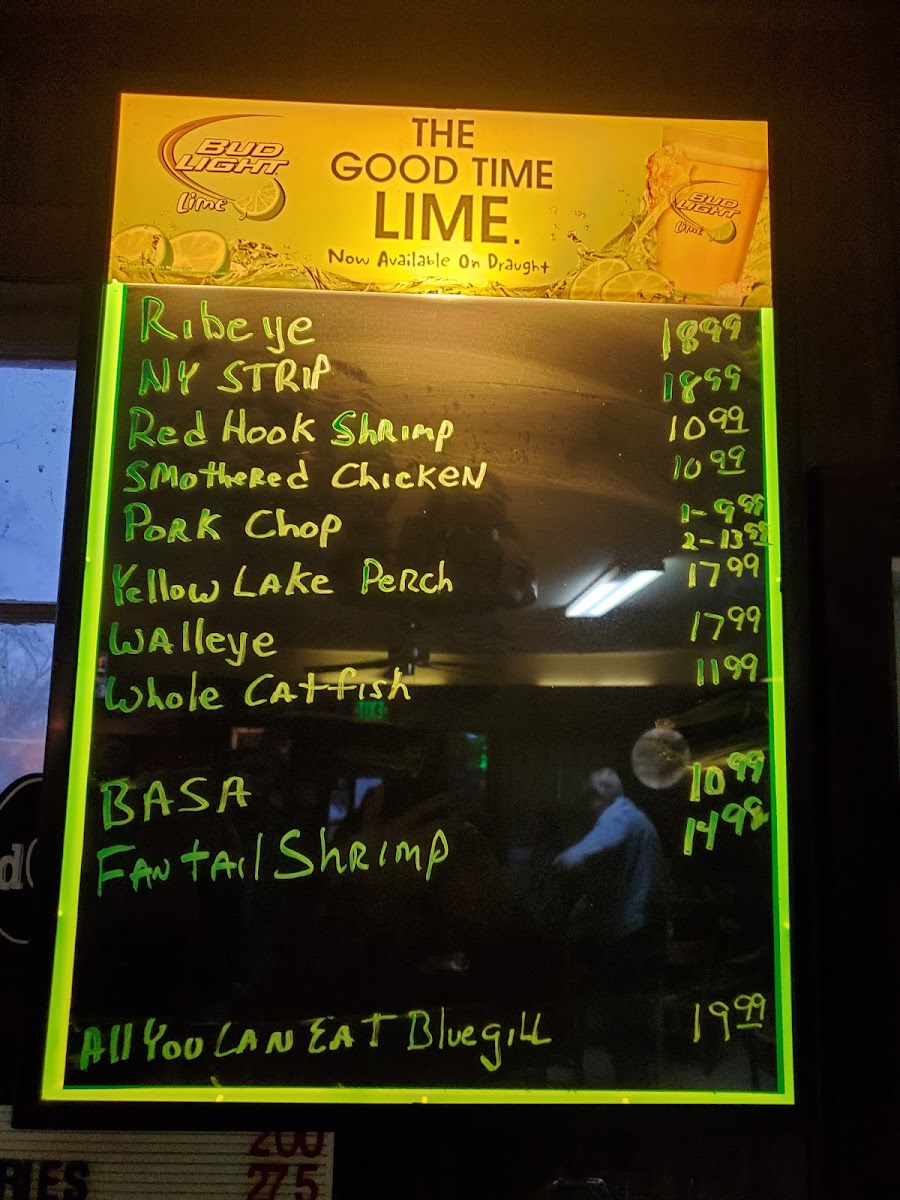 BUD LIGHT Lime
THE GOOD TIME LIME.
Now Available On Draught
BUD LIGHT Lime
Ribeye 18 99
NY STRIP 18 99
Red Hook Shrimp 10 99
Smothered Chicken 10 99
Pork Chop 1-9 99
2-13 99
Yellow Lake Perch 17 99
Walleye 17 99
Whole Catfish 11 99
BASA 10 99
Fantail Shrimp 14 99
All You Can Eat Bluegill 19 99
200
RIES 275